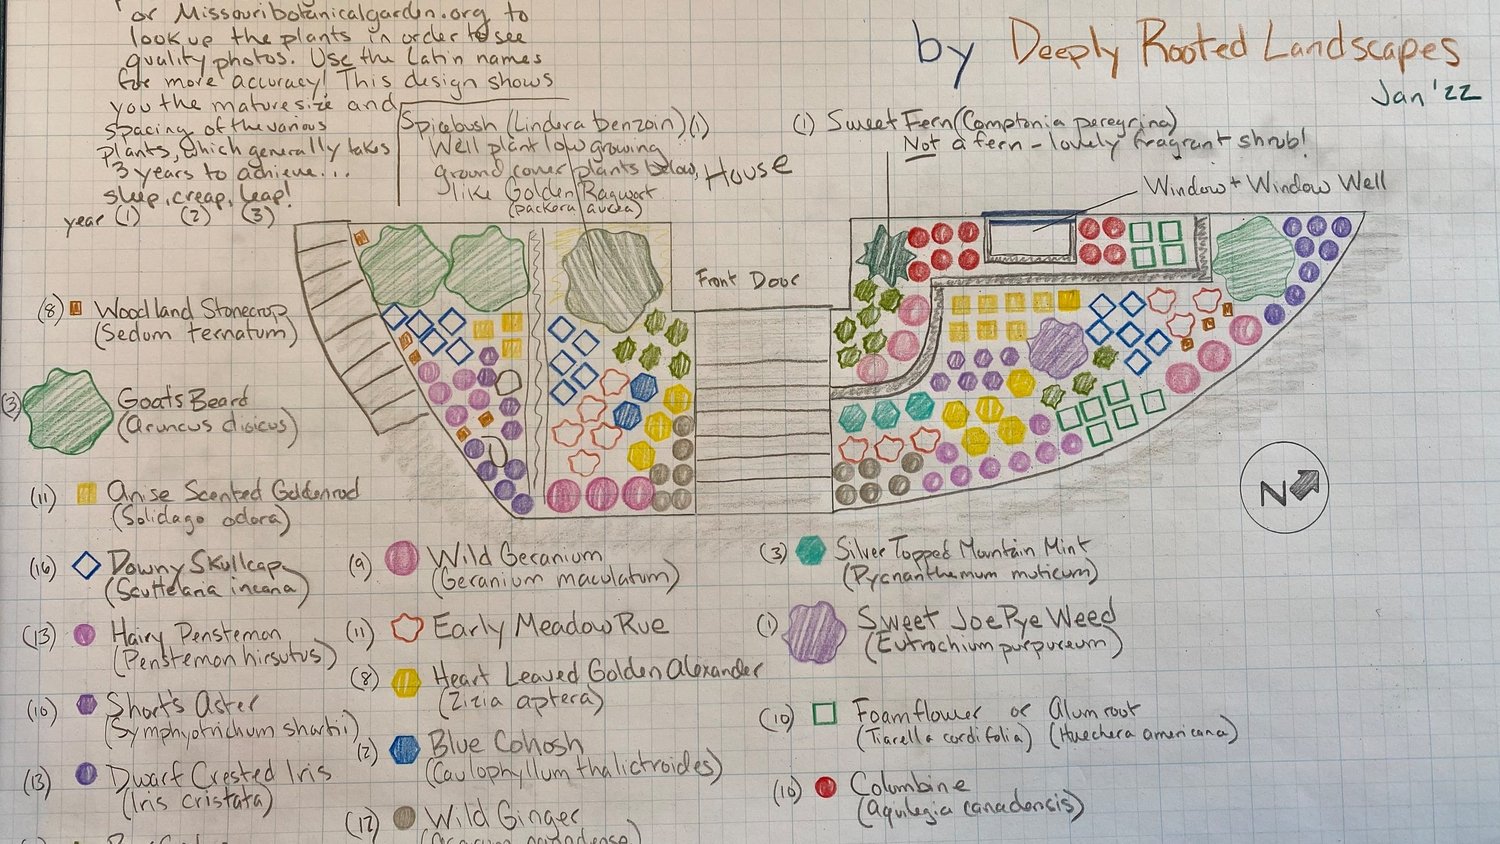 or Missouribotanicalgarden.org to
look up the plants in order to see
quality photos. Use the Latin names
for more accuracy! This design shows
you the mature size and
spacing of the various
plants, which generally takes
3 years to achieve...
sleep, creap, leap!
year (1) (2) (3)
by Deeply Rooted Landscapes
Jan '22
Spicebush (Lindera benzoin) (1)
Well plant low growing
ground cover plants below,
like Golden Ragwort
(packera aurea)
House
(1) Sweet Fern (Comptonia peregrina)
Not a fern - lovely fragrant shrub!
Window + Window Well
Front Door
N
(8) Woodland Stonecrop
(Sedum ternatum)
(3) Goat's Beard
(Aruncus dioicus)
(11) Anise Scented Goldenrod
(Solidago odora)
(16) Downy Skullcap
(Scuttelaria incana)
(13) Hairy Penstemon
(Penstemon hirsutus)
(10) Short's Aster
(Symphyotrichum shortii)
(13) Dwarf Crested Iris
(Iris cristata)
(9) Wild Geranium
(Geranium maculatum)
(11) Early Meadow Rue
(8) Heart Leaved Golden Alexander
(Zizia aptera)
(2) Blue Cohosh
(Caulophyllum thalictroides)
(12) Wild Ginger
(3) Silver Topped Mountain Mint
(Pycnanthemum muticum)
(1) Sweet Joe Pye Weed
(Eutrochium purpureum)
(10) Foamflower or Alumroot
(Tiarella cordifolia) (Huechera americana)
(10) Columbine
(Aquilegia canadensis)